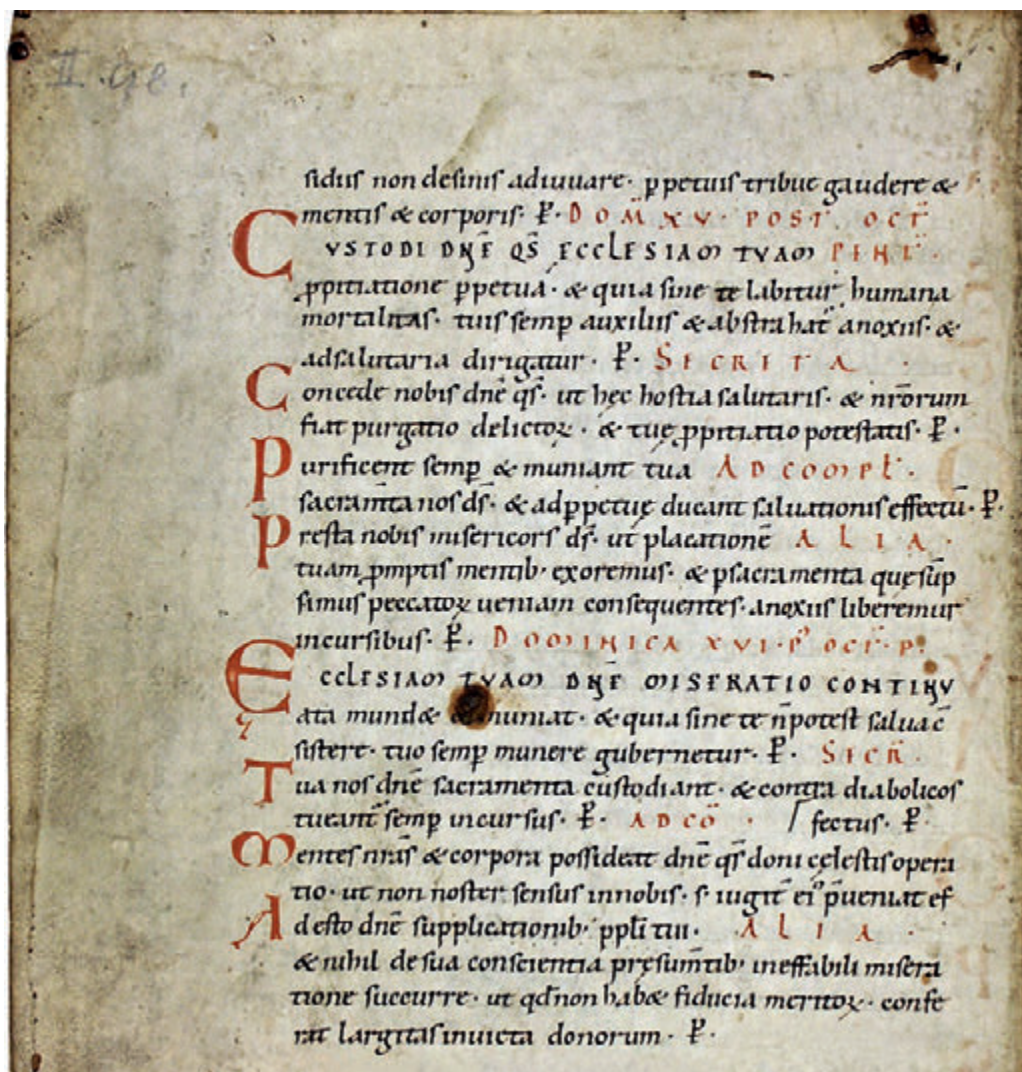 II. 98.
sidus non desinis adiuuare· ppetuis tribue gaudere &
mentis & corporis· P̄· DOM̄ XV· POST· OCT̄
CUSTODI DN̄E QS̄ ECCLESIAM TVAM PENT̄·
ppitiatione ppetua· & quia sine te labitur humana
mortalitas· tuis semp̄ auxiliis & abstrahat̄ anoxiis· &
adsalutaria dirigatur· P̄· SECRETA
Concede nobis dn̄e qs̄· ut hęc hostia salutaris· & nr̄orum
fiat purgatio delictoꝝ· & tuę ppitiatio potestatis· P̄·
Purificent semp̄ & muniant tua AD COMPL̄·
sacram̄ta nos ds̄· & adppetuę ducant saluationis effectū· P̄·
Presta nobis misericors ds̄· ut placationē ALIA·
tuam pmptis mentib· exoremus· & psacramenta quę sūp
simus peccatoꝝ ueniam consequentes· anoxiis liberemur
incursibus· P̄· DOMINICA XVI· P' OCT̄· P·
ECCLESIAM TVAM DN̄E MISERATIO CONTINV
ata mund& & muniat· & quia sine te n̄potest salua c̄
sistere· tuo semp̄ munere gubernetur· P̄· SECR̄·
Tua nos dn̄e sacramenta custodiant· & contra diabolicos
tueant̄ semp̄ incursus· P̄· AD CŌ· fectus· P̄·
Mentes nr̄as & corpora possideat dn̄e qs̄ doni cęlestis opera
tio· ut non noster sensus innobis· s· iugit̄ ei' p̄ueniat ef
Adesto dn̄e supplicationib· ppl̄i tui· ALIA
& nihil de sua conscientia pręsum̄tib· ineffabili misera
tione succurre· ut qd̄ non hab& fiducia meritoꝝ· confe
rat largitas inuicta donorum· P̄·